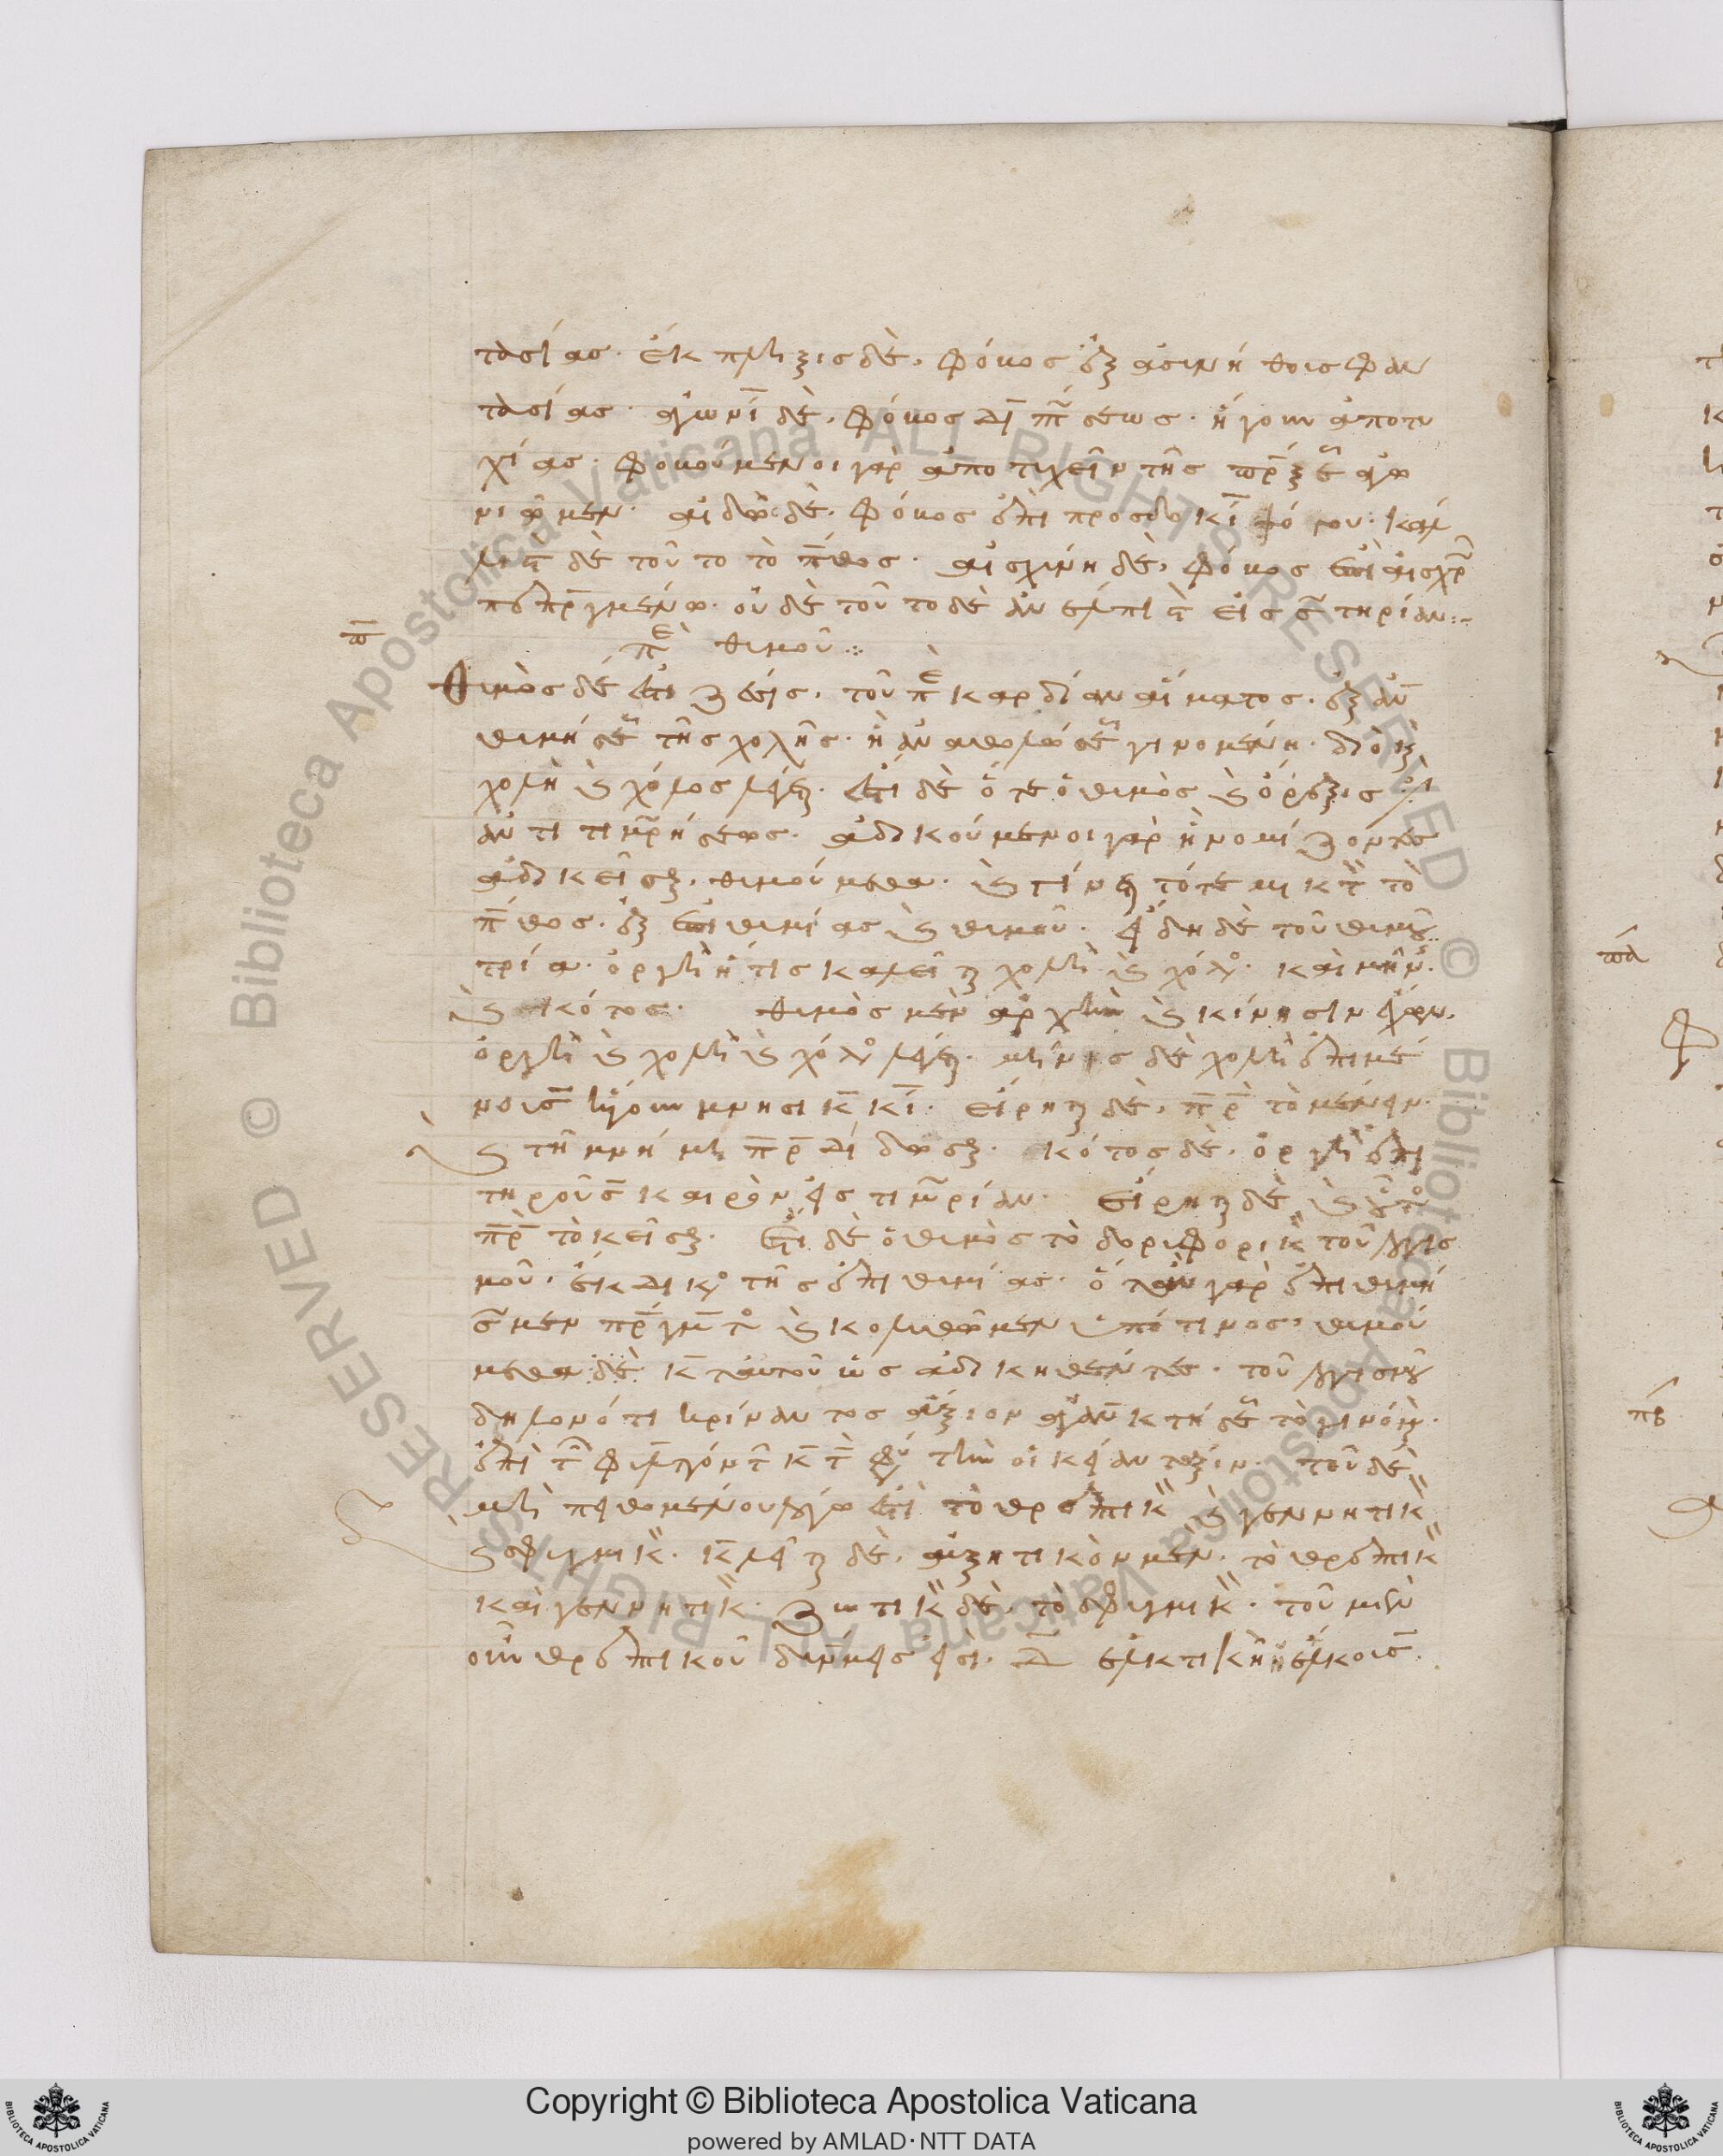 τασίας· ἔκπληξις δὲ, φόβος ἐξ ἀσυνήθους φαν
τασίας· ἀγωνία δὲ, φόβος διαπτώσεως· ἤγουν ἀποτυ
χίας· φοβούμενοι γὰρ ἀποτυχεῖν τῆς πράξεως ἀγω
νιῶμεν· αἰδὼς δὲ, φόβος ἐπὶ προσδοκία ψόγου· καλ
λιστον δὲ τοῦτο τὸ πάθος· αἰσχύνη δὲ, φόβος ἐπὶ αἰσχρῶ
πεπραγμένω· οὐδὲ τοῦτο δὲ ἀνέλπιστον εἰς σωτηρίαν:-
π
περὶ θυμοῦ:
Θυμὸς δέ ἐστι ζέσις, τοῦ περὶ καρδίαν αἵματος, ἐξ ἀνα
θυμιάσεως τῆς χολῆς· ἢ ἀναθολώσεως γινομένη· διὸ καὶ
χολὴ καὶ χόλος λέγεται· ἔστι δὲ ὅτε ὁ θυμὸς καὶ ὄρεξις ἐστὶ
ἀντιτιμωρήσεως· ἀδικούμενοι γὰρ ἢ νομίζοντες
ἀδικεῖσθαι, θυμούμεθα· καὶ γίνεται τότε μικτὸν τὸ
πάθος· ἐξ ἐπιθυμίας καὶ θυμοῦ· εἴδη δὲ τοῦ θυμοῦ
τρία· ὀργὴ ἥτις καλεῖται χολὴ καὶ χόλος· καὶ μῆνις·
καὶ κότος· θυμὸς μὲν ἀρχὴν καὶ κίνησιν ἔχων,
ὀργὴ καὶ χολὴ καὶ χόλος λέγεται· μῆνις δὲ χολὴ ἐπιμέ
νουσα ἤγουν μνησικακία· εἴρηται δὲ, παρὰ τὸ μένειν·
καὶ τῆ μνήμη παραδίδοσθαι· κότος δὲ, ὀργὴ ἐπι
τηροῦσα καιρὸν εἰς τιμωρίαν· εἴρηται δὲ καὶ οὗτος
παρὰ τὸ κεῖσθαι· ἔστι δὲ ὁ θυμὸς τὸ δορυφορικὸν τοῦ λογισ
μοῦ· ἔκδικος τῆς ἐπιθυμίας· ὅταν γὰρ ἐπιθυμή
σωμεν πράγματος καὶ κολυθῶμεν ὑπό τινος, θυμού
μεθα δὲ κατ αὐτοῦ ὡς ἀδικηθέντες· τοῦ λογισμοῦ
δηλονότι κρίναντος ἄξιον ἀγανακτήσεως τὸ γινόμενον·
ἐπὶ τῶν φυλαττόντων κατὰ φύσιν τὴν οἰκείαν τάξιν· τοῦ δὲ
μὴ πειθομένου λόγω ἐστὶ τὸ θρεπτικὸν καὶ γεννητικὸν
καὶ σφυγμικὸν· καλεῖται δὲ, αὐξητικὸν μὲν, τὸ θρεπτικὸν
καὶ γεννητικὸν· ζωτικὸν δὲ, τὸ σφυγμικὸν· τοῦ μὲν
οὖν θρεπτικοῦ δυνάμεις εἰσὶ, δ ἑλκτικὴ ἡ ἕλκουσα
Copyright © Biblioteca Apostolica Vaticana
powered by AMLAD·NTT DATA